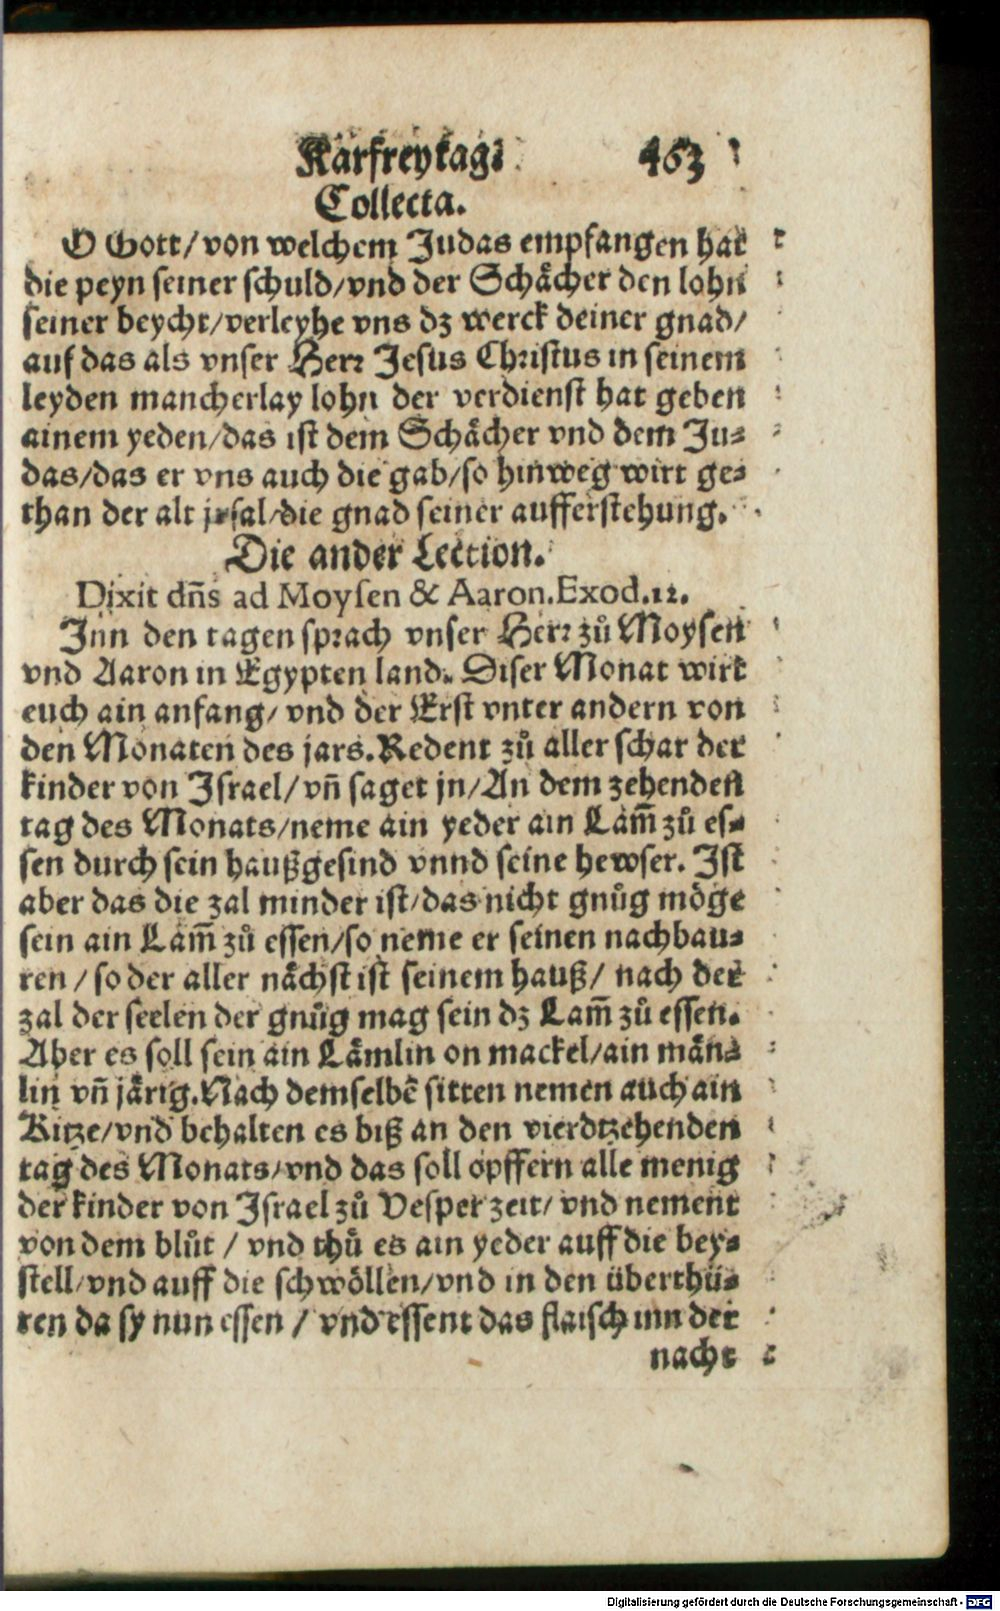 Karfreytag. 463
Collecta.
O Gott/von welchem Judas empfangen hat
die peyn seiner schuld/vnd der Schächer den lohn
seiner beycht/verleyhe vns dz werck deiner gnad/
auf das als vnser Herr Jesus Christus in seinem
leyden mancherlay lohn der verdienst hat geben
ainem yeden/das ist dem Schächer vnd dem Ju-
das/das er vns auch die gab/so hinweg wirt ge-
than der alt jrsal/die gnad seiner aufferstehung.
Die ander Lection.
Dixit dn̄s ad Moysen & Aaron.Exod.12.
Jnn den tagen sprach vnser Herr zů Moysen
vnd Aaron in Egypten land. Diser Monat wirt
euch ain anfang/ vnd der Erst vnter andern von
den Monaten des jars.Redent zů aller schar der
kinder von Jsrael/ vn̄ saget jn/An dem zehenden
tag des Monats/neme ain yeder ain Lam̄ zů es-
sen durch sein haußgesind vnnd seine hewser. Jst
aber das die zal minder ist/das nicht gnůg möge
sein ain Lam̄ zů essen/so neme er seinen nachbau-
ren / so der aller nächst ist seinem hauß/ nach der
zal der seelen der gnůg mag sein dz Lam̄ zů essen.
Aber es soll sein ain Lämlin on mackel/ain män-
lin vn̄ järig.Nach demselbē sitten nemen auch ain
Kitze/vnd behalten es biß an den vierdtzehenden
tag des Monats/vnd das soll opffern alle menig
der kinder von Jsrael zů Vesper zeit/ vnd nement
von dem blůt / vnd thů es ain yeder auff die bey-
stell/vnd auff die schwöllen/vnd in den überthü-
ren da sy nun essen / vnd essent das flaisch inn der
nacht
Digitalisierung gefördert durch die Deutsche Forschungsgemeinschaft - DFG